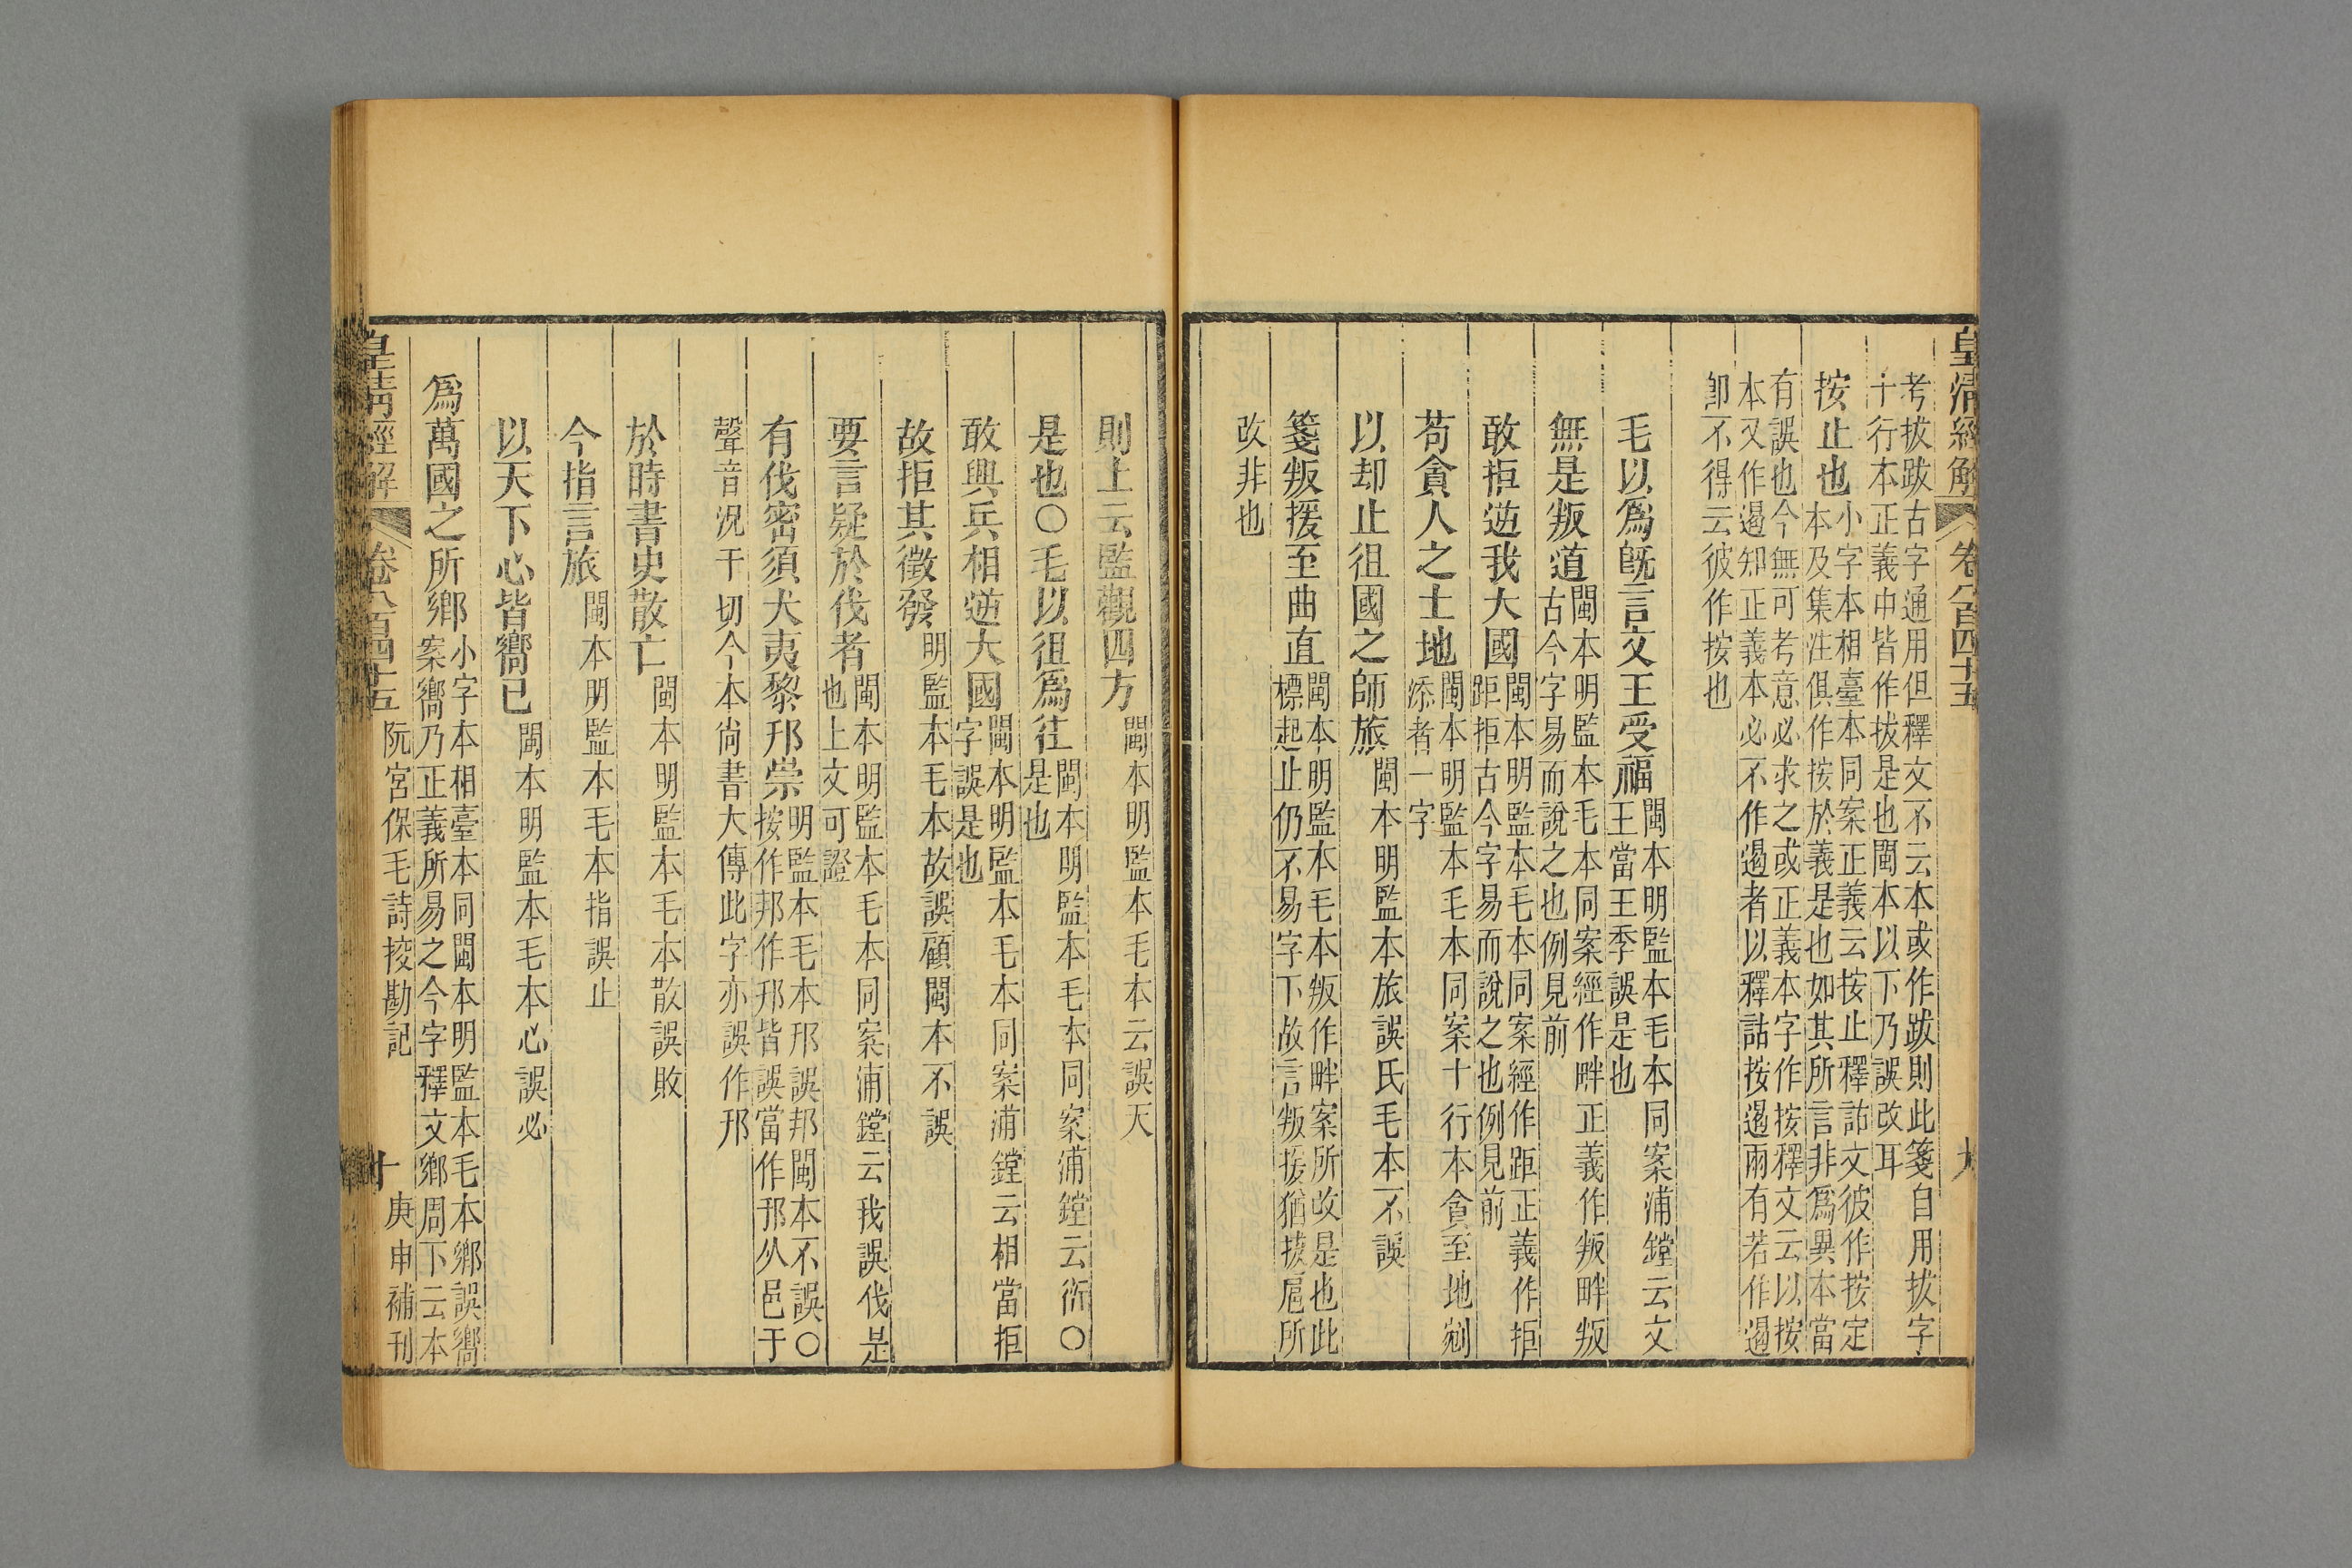 皇清經解 卷八百四十五 九
考拔跋古字通用但釋文不云本或作跋則此箋自用拔字
十行本正義中皆作拔是也閩本以下乃誤改耳
按止也 小字本相臺本同案正義云按止釋詁文彼作按定
本及集注俱作按於義是也如其所言非爲異本當
有誤也今無可考意必求之或正義本字作按釋文云以按
本又作遏知正義本必不作遏者以釋詁按遏兩有若作遏
卽不得云彼作按也
毛以爲旣言文王受福 閩本明監本毛本同案浦鏜云文
王當王季誤是也
無是叛道 閩本明監本毛本同案經作畔正義作叛畔叛
古今字易而說之也例見前
敢拒逆我大國 閩本明監本毛本同案經作距正義作拒
距拒古今字易而說之也例見前
苟貪人之土地 閩本明監本毛本同案十行本貪至地剜
添者一字
以却止徂國之師旅 閩本明監本旅誤氏毛本不誤
箋叛援至曲直 閩本明監本毛本叛作畔案所改是也此
標起止仍不易字下故言叛援猶拔扈所
改非也
則上云監觀四方 閩本明監本毛本云誤天
是也〇毛以徂爲往 閩本明監本毛本同案浦鏜云衍〇
是也
敢興兵相逆大國 閩本明監本毛本同案浦鏜云相當拒
字誤是也
故拒其徵發 明監本毛本故誤顧閩本不誤
要言疑於伐者 閩本明監本毛本同案浦鏜云我誤伐是
也上文可證
有伐密須犬夷黎邘崇 明監本毛本邘誤邦閩本不誤〇
按作邦作邘皆誤當作邗从邑于
聲音況于切今本尚書大傳此字亦誤作邘
於時書史散亡 閩本明監本毛本散誤敗
今指言旅 閩本明監本毛本指誤止
以天下心皆嚮已 閩本明監本毛本心誤必
爲萬國之所鄉 小字本相臺本同閩本明監本毛本鄉誤嚮
案嚮乃正義所易之今字釋文鄉周下云本
皇清經解 卷八百四十五 阮宮保毛詩挍勘記 十 庚申補刊